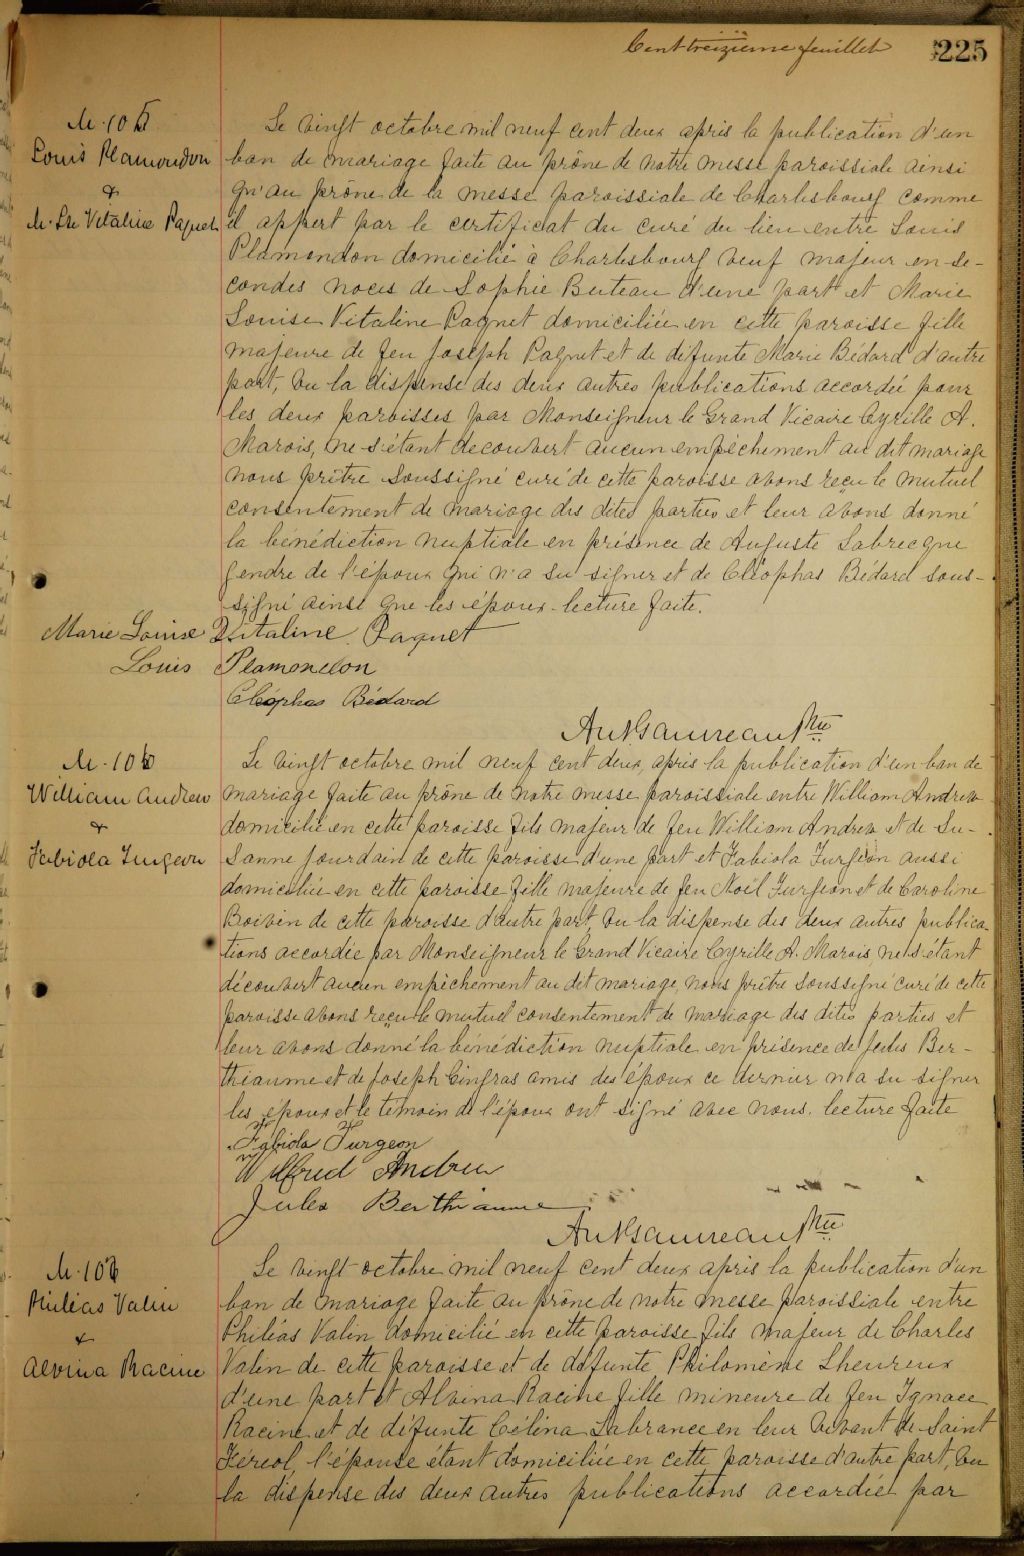 Cent treizieme feuillet 225
M. 105
Louis Plamondon
&
M. Lse Vitaline Paquet
Le vingt octobre mil neuf cent deux après la publication d'un
ban de mariage faite au prône de notre messe paroissiale ainsi
qu'au prône de la messe paroissiale de Charlesbourg comme
il appert par le certificat du curé du lieu entre Louis
Plamondon domicilié à Charlesbourg veuf majeur en se-
condes noces de Sophie Buteau d'une part et Marie
Louise Vitaline Paquet domiciliée en cette paroisse fille
majeure de feu Joseph Paquet et de défunte Marie Bédard d'autre
part, vu la dispense des deux autres publications accordée pour
les deux paroisses par Monseigneur le Grand Vicaire Cyrille A.
Marois, ne s'étant découvert aucun empêchement au dit mariage
nous prêtre soussigné curé de cette paroisse avons reçu le mutuel
consentement de mariage des dites parties et leur avons donné
la bénédiction nuptiale en présence de Auguste Labrecque
gendre de l'époux qui n'a su signer et de Cléophas Bédard sous-
signé ainsi que les époux. lecture faite.
Marie Louise Vitaline Paquet
Louis Plamondon
Cléophas Bédard
Ptre
M. 106
William Andrew
&
Fabiola Turgeon
Le vingt octobre mil neuf cent deux, après la publication d'un ban de
mariage faite au prône de notre messe paroissiale entre William Andrew
domicilié en cette paroisse fils majeur de feu William Andrew et de Su-
sanne Jourdain de cette paroisse d'une part et Fabiola Turgeon aussi
domiciliée en cette paroisse fille majeure de feu Noël Turgeon et de Caroline
Boivin de cette paroisse d'autre part, vu la dispense des deux autres publica-
tions accordée par Monseigneur le Grand Vicaire Cyrille A. Marois, ne s'étant
découvert aucun empêchement au dit mariage, nous prêtre soussigné curé de cette
paroisse avons reçu le mutuel consentement de mariage des dites parties et
leur avons donné la bénédiction nuptiale en présence de Jules Ber-
thiaume et de Joseph Gingras amis des époux ce dernier n'a su signer
les époux et le témoin de l'époux ont signé avec nous. lecture faite
Fabiola Turgeon
Wilfred Andrew
Jules Berthiaume
Ptre
M. 107
Philéas Valin
&
Alvina Racine
Le vingt octobre mil neuf cent deux après la publication d'un
ban de mariage faite au prône de notre messe paroissiale entre
Philéas Valin domicilié en cette paroisse fils majeur de Charles
Valin de cette paroisse et de défunte Philomène Lheureux
d'une part et Alvina Racine fille mineure de feu Ignace
Racine et de défunte Célina Labrance en leur vivant de Saint
Féréol, l'épouse étant domiciliée en cette paroisse d'autre part, vu
la dispense des deux autres publications accordée par